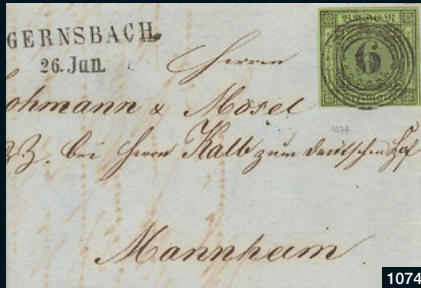 GERNSBACH.
26. Jun.
Herrn
Lohmann & Mosel
bei Herrn Kalb zum deutschen Hof
Mannheim
6
1074
1074